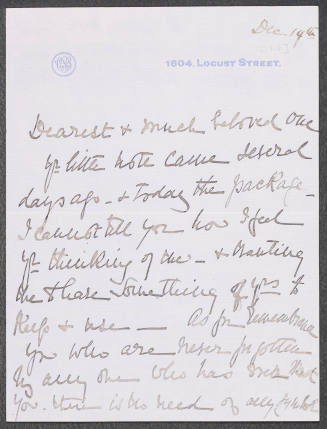 Dec 19th
1604. LOCUST STREET.
Dearest & much beloved one
yr little note came several
days ago - & today the package -
I cannot tell you how I feel
yr thinking of me - & wanting
me to have something of yrs to
keep & use — as for remembrance
you who are never forgotten
by any one who has ever
you. there is no need of any